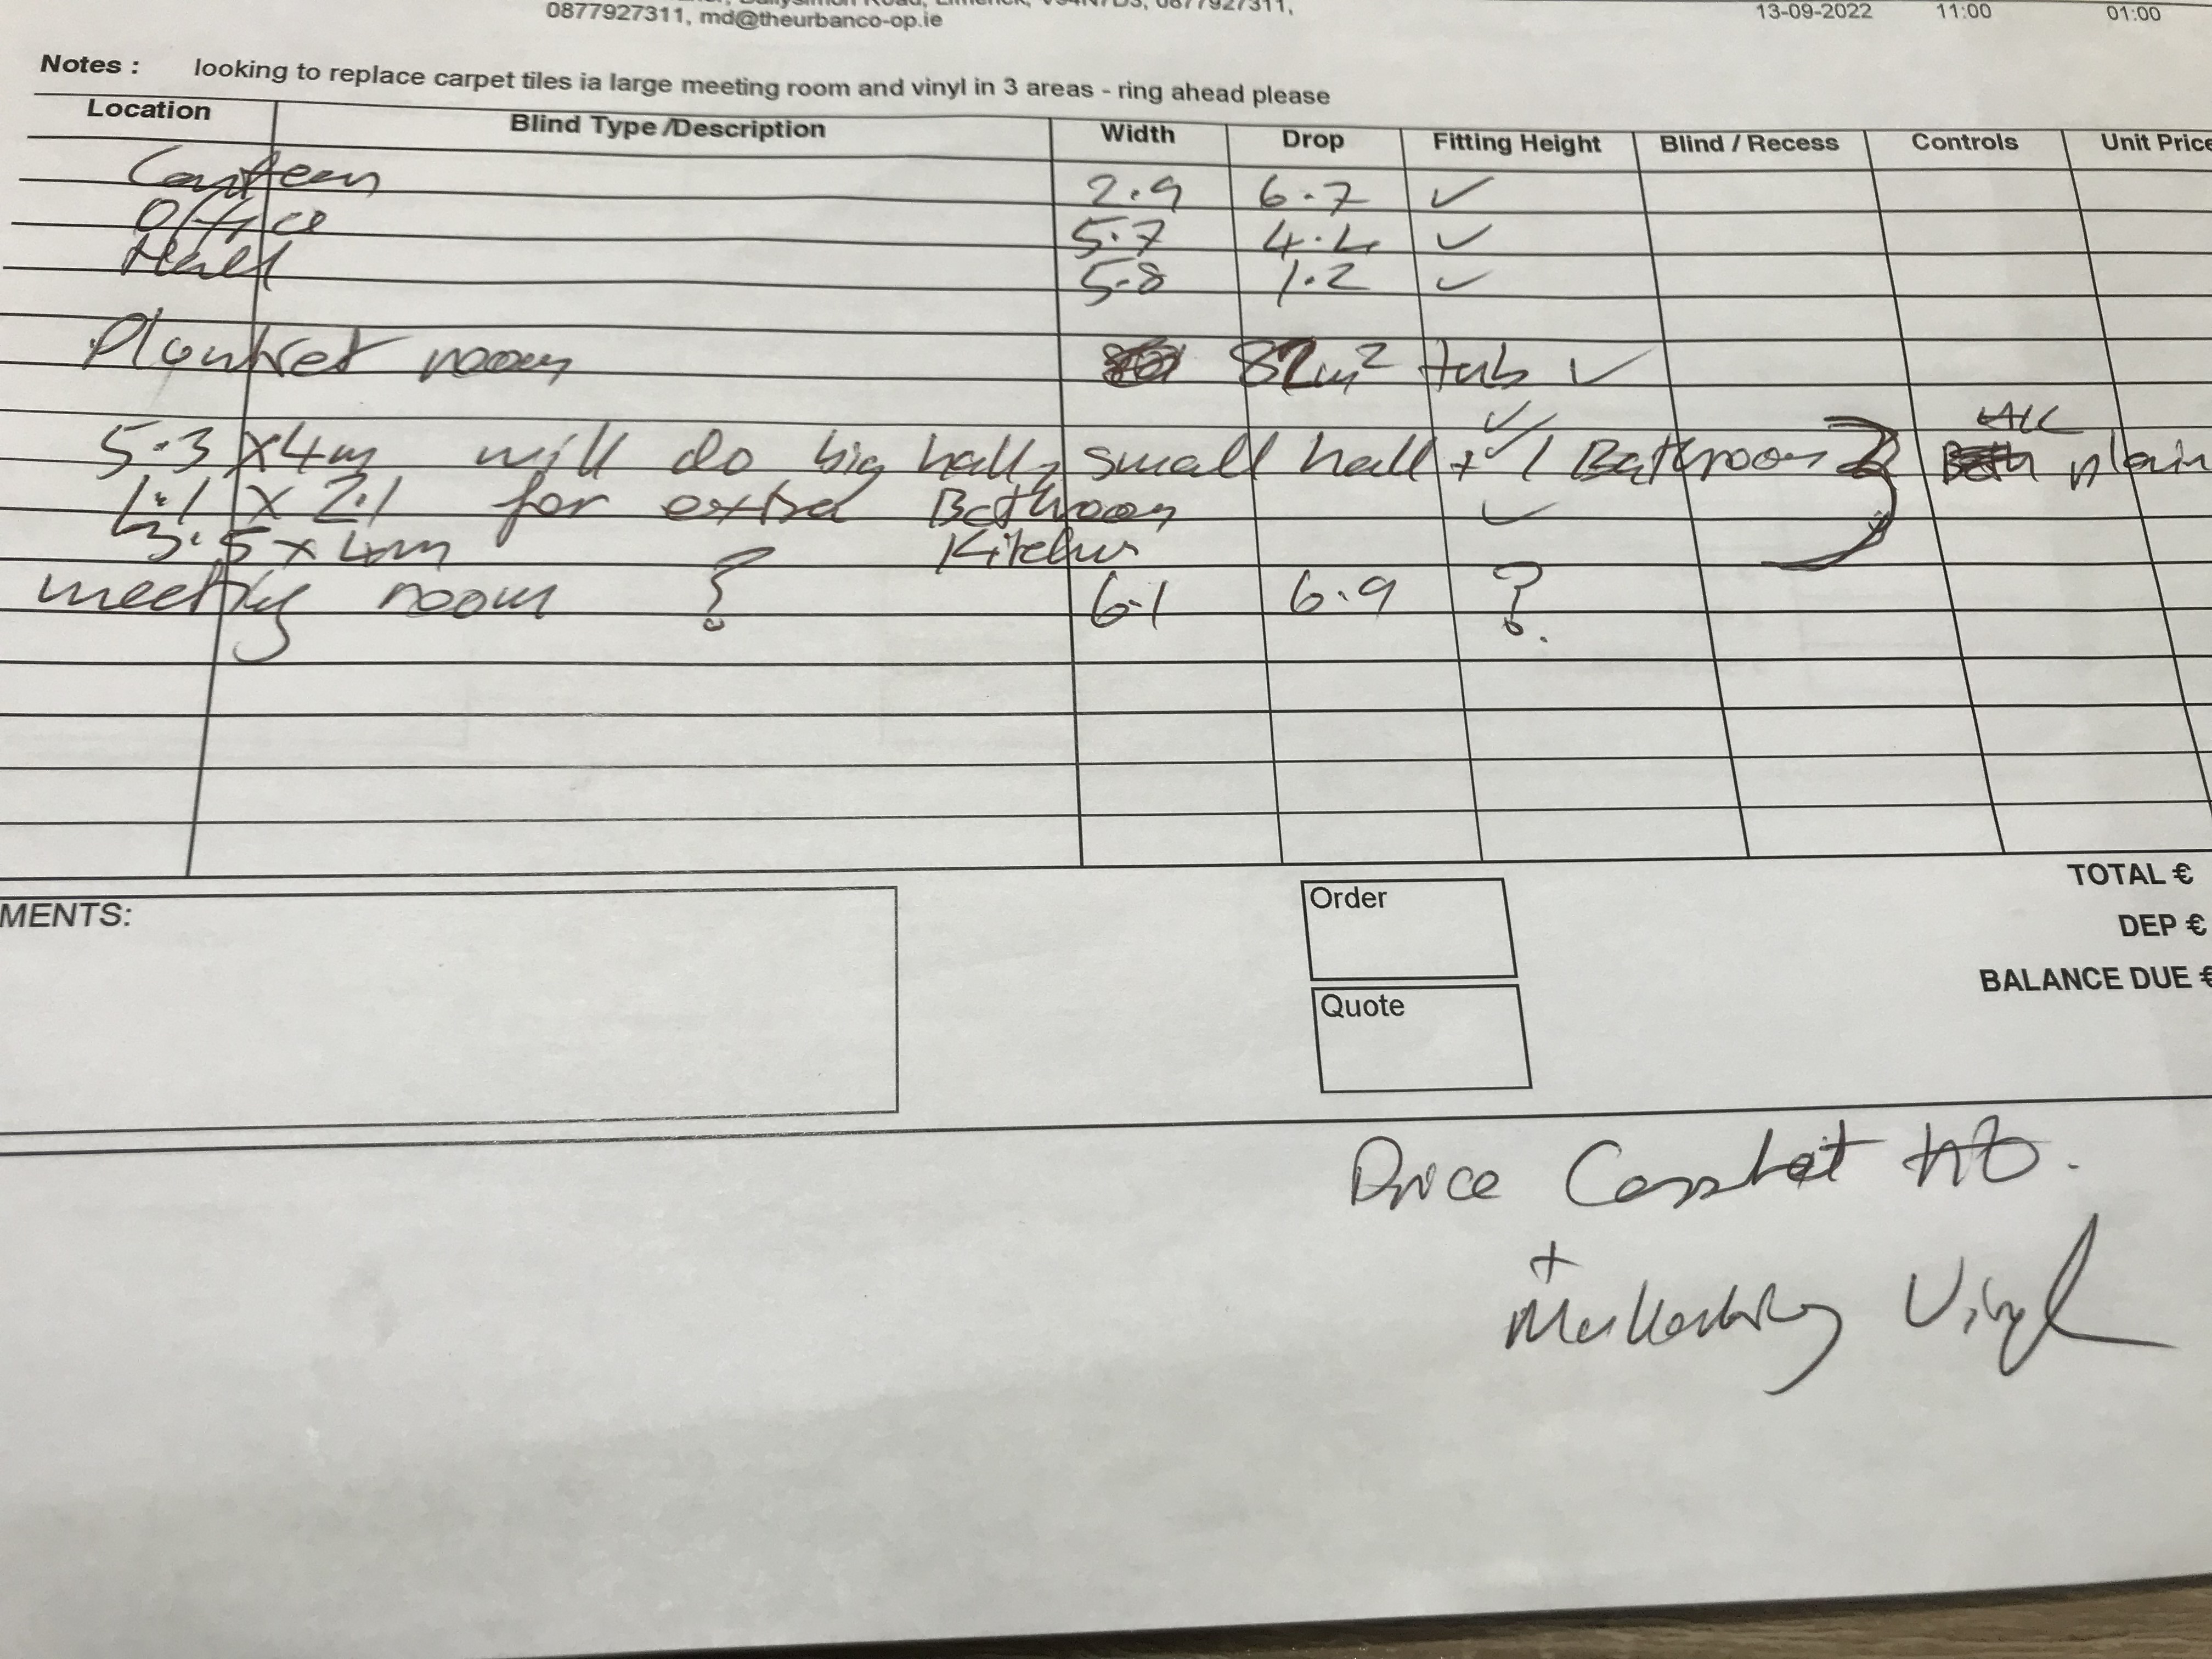 0877927311,
0877927311, md@theurbanco-op.ie
13-09-2022 11:00 01:00
Notes : looking to replace carpet tiles ia large meeting room and vinyl in 3 areas - ring ahead please
Location Blind Type /Description Width Drop Fitting Height Blind / Recess Controls Unit Price
Canteen 2.9 6.7 ✓
Office 5.7 4.4 ✓
Hall 5.8 1.2 ✓
room 82m² tub ✓
5.3 x 4m will do big hall, small hall + 1 Bathroom All plain
1.1 x 2.1 for extra Bathroom ✓
3.5 x 4m Kitchen
meeting room ? 6.1 6.9 ?
TOTAL €
MENTS:
Order
DEP €
BALANCE DUE €
Quote
Price
+
Vinyl